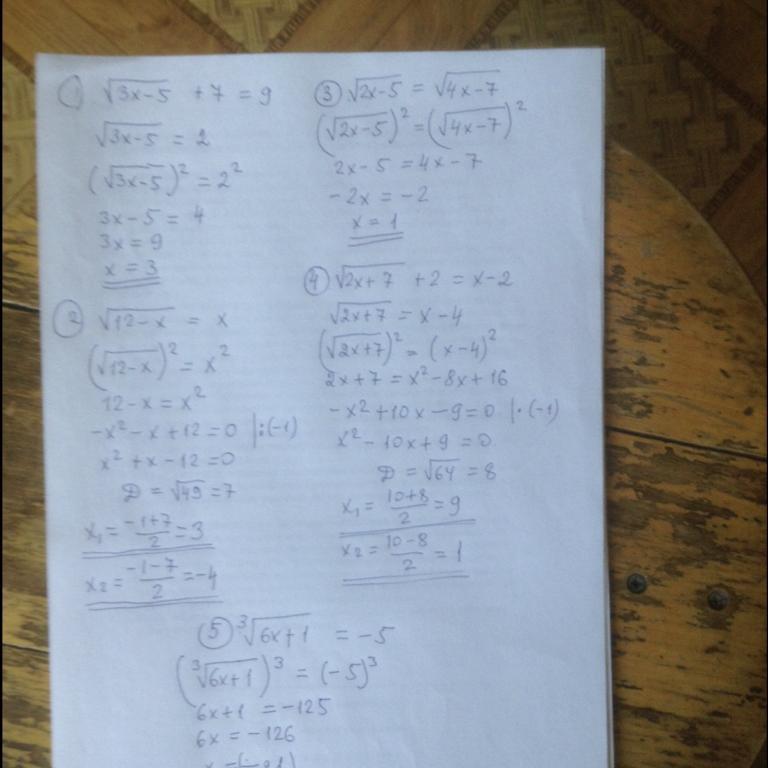 ① √3x-5 + 7 = 9
√3x-5 = 2
(√3x-5)² = 2²
3x-5 = 4
3x = 9
x = 3
② √12-x = x
(√12-x)² = x²
12-x = x²
-x²-x+12=0 |:(-1)
x²+x-12=0
D = √49 = 7
x₁ = (-1+7)/2 = 3
x₂ = (-1-7)/2 = -4
③ √2x-5 = √4x-7
(√2x-5)² = (√4x-7)²
2x-5 = 4x-7
-2x = -2
x = 1
④ √2x+7 + 2 = x-2
√2x+7 = x-4
(√2x+7)² = (x-4)²
2x+7 = x²-8x+16
-x²+10x-9=0 |·(-1)
x²-10x+9=0
D = √64 = 8
x₁ = (10+8)/2 = 9
x₂ = (10-8)/2 = 1
⑤ ³√6x+1 = -5
(³√6x+1)³ = (-5)³
6x+1 = -125
6x = -126